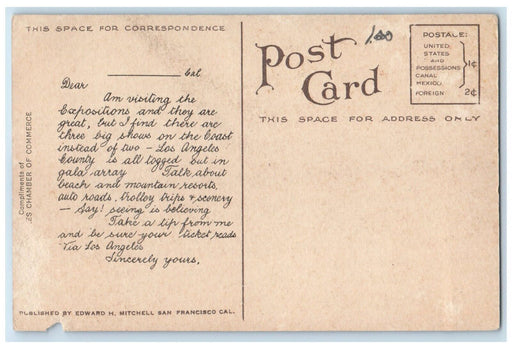 THIS SPACE FOR CORRESPONDENCE
1.00
Post
Card
POSTALE:
UNITED
STATES
AND
POSSESSIONS
CANAL
MEXICO
1¢
FOREIGN 2¢
THIS SPACE FOR ADDRESS ONLY
Cal.
Dear
Am visiting the
Expositions and they are
great, but I find there are
three big shows on the Coast
instead of two – Los Angeles
County is all togged out in
gala array Talk about
beach and mountain resorts,
auto roads, trolley trips & scenery
– Say! seeing is believing
Take a tip from me
and be sure your ticket reads
Via Los Angeles
Sincerely yours,
Compliments of
CHAMBER OF COMMERCE
PUBLISHED BY EDWARD H. MITCHELL SAN FRANCISCO CAL.